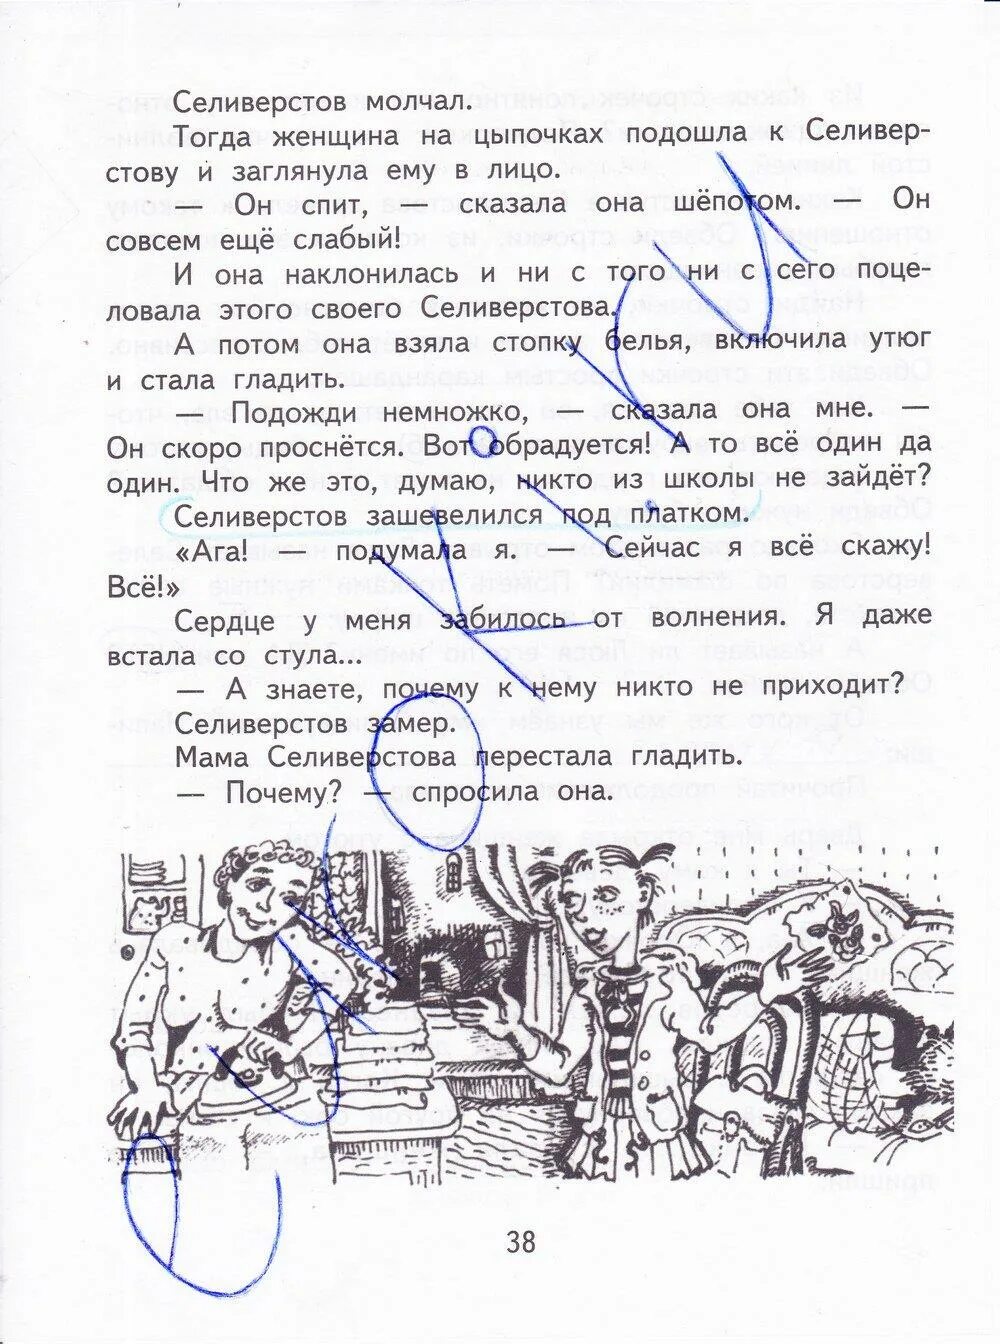 Селиверстов молчал.
Тогда женщина на цыпочках подошла к Селивер-
стову и заглянула ему в лицо.
— Он спит, — сказала она шёпотом. — Он
совсем ещё слабый!
И она наклонилась и ни с того ни с сего поце-
ловала этого своего Селиверстова.
А потом она взяла стопку белья, включила утюг
и стала гладить.
— Подожди немножко, — сказала она мне. —
Он скоро проснётся. Вот обрадуется! А то всё один да
один. Что же это, думаю, никто из школы не зайдёт?
Селиверстов зашевелился под платком.
«Ага! — подумала я. — Сейчас я всё скажу!
Всё!»
Сердце у меня забилось от волнения. Я даже
встала со стула...
— А знаете, почему к нему никто не приходит?
Селиверстов замер.
Мама Селиверстова перестала гладить.
— Почему? — спросила она.
38